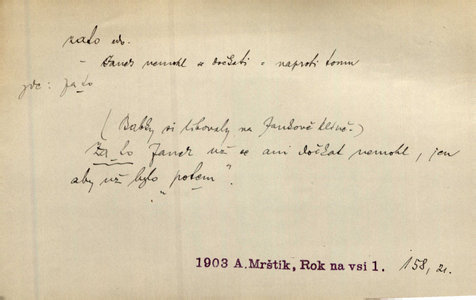 zato adv.
– Janek nemohl se dočkati – naproti tomu
jde: za to
(Babky si libovaly na Jankově klíně.)
Za to Janek už se ani dočkat nemohl, jen
aby už bylo „potem“.
1903 A. Mrštík, Rok na vsi 1. 158, 21.